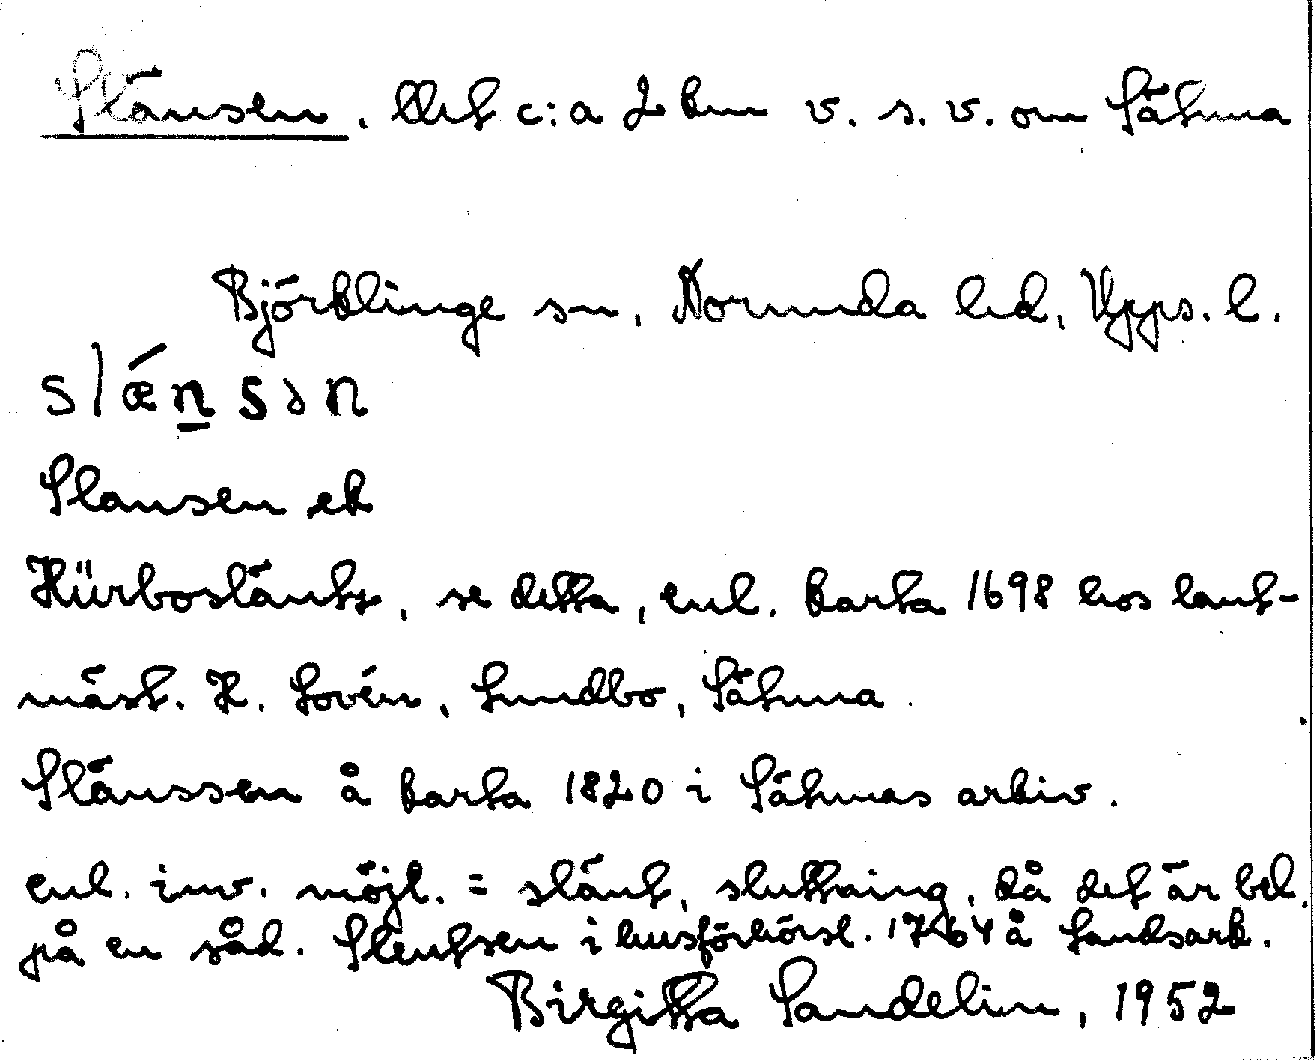 Slänsen. Utt c:a 2 km v. s. v. om Sätuna
Björklinge sn, Norunda hd, Upps. l.
slǽn̲sən
Slansen ek
Hürboslänts, se detta, enl. karta 1698 hos lant-
mäst. H. Lovén, Lundbo, Sätuna
Slänssen å karta 1820 i Sätunas arkiv.
enl. inv. möjl. = slänt, sluttning, då det är bel.
på en såd. Slentsen i husförhörsl. 1764 å Landsark.
Birgitta Sandelin, 1952